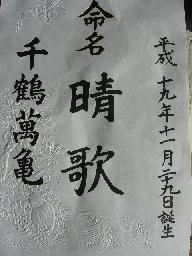 平成十九年十一月二十九日誕生
命名
晴歌
千鶴萬亀